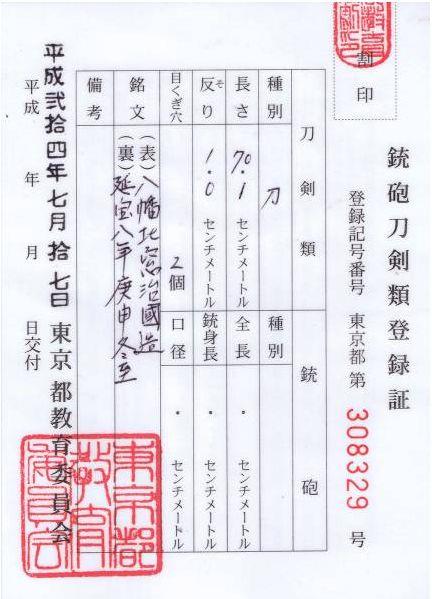 銃砲刀剣類登録証
割印
登録記号番号 東京都 第 308329 号
刀剣類 銃砲
種別 刀 種別
長さ 70.1 センチメートル 全長 ・ センチメートル
反り そ 1.0 センチメートル 銃身長 ・ センチメートル
目くぎ穴 2個 口径 ・ センチメートル
銘文 (表)八幡北窓治國造
(裏)延宝八年庚申冬至
備考
平成弐拾四年七月拾七日
平成 年 月 日交付
東京都教育委員会
東京都教育委員会